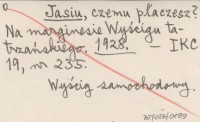 Jasiu, czemu płaczesz?
Na marginesie Wyścigu ta-
trzańskiego. 1928. – IKC
19, nr 235.
Wyścig samochodowy.